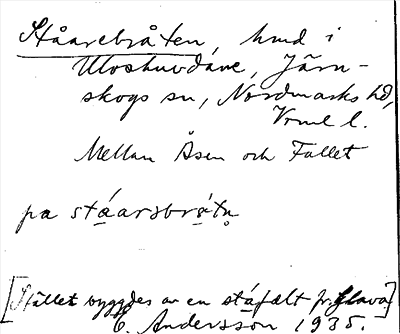 Ståarebråten, hmd i
Uloshuvdane, Järn-
skogs sn, Nordmarks hd,
Vrml l.
Mellan Åsen och Fallet
pa ståarsbråtn
[Stället byggdes av en ståfält fr. Glava]
E. Andersson 1935.